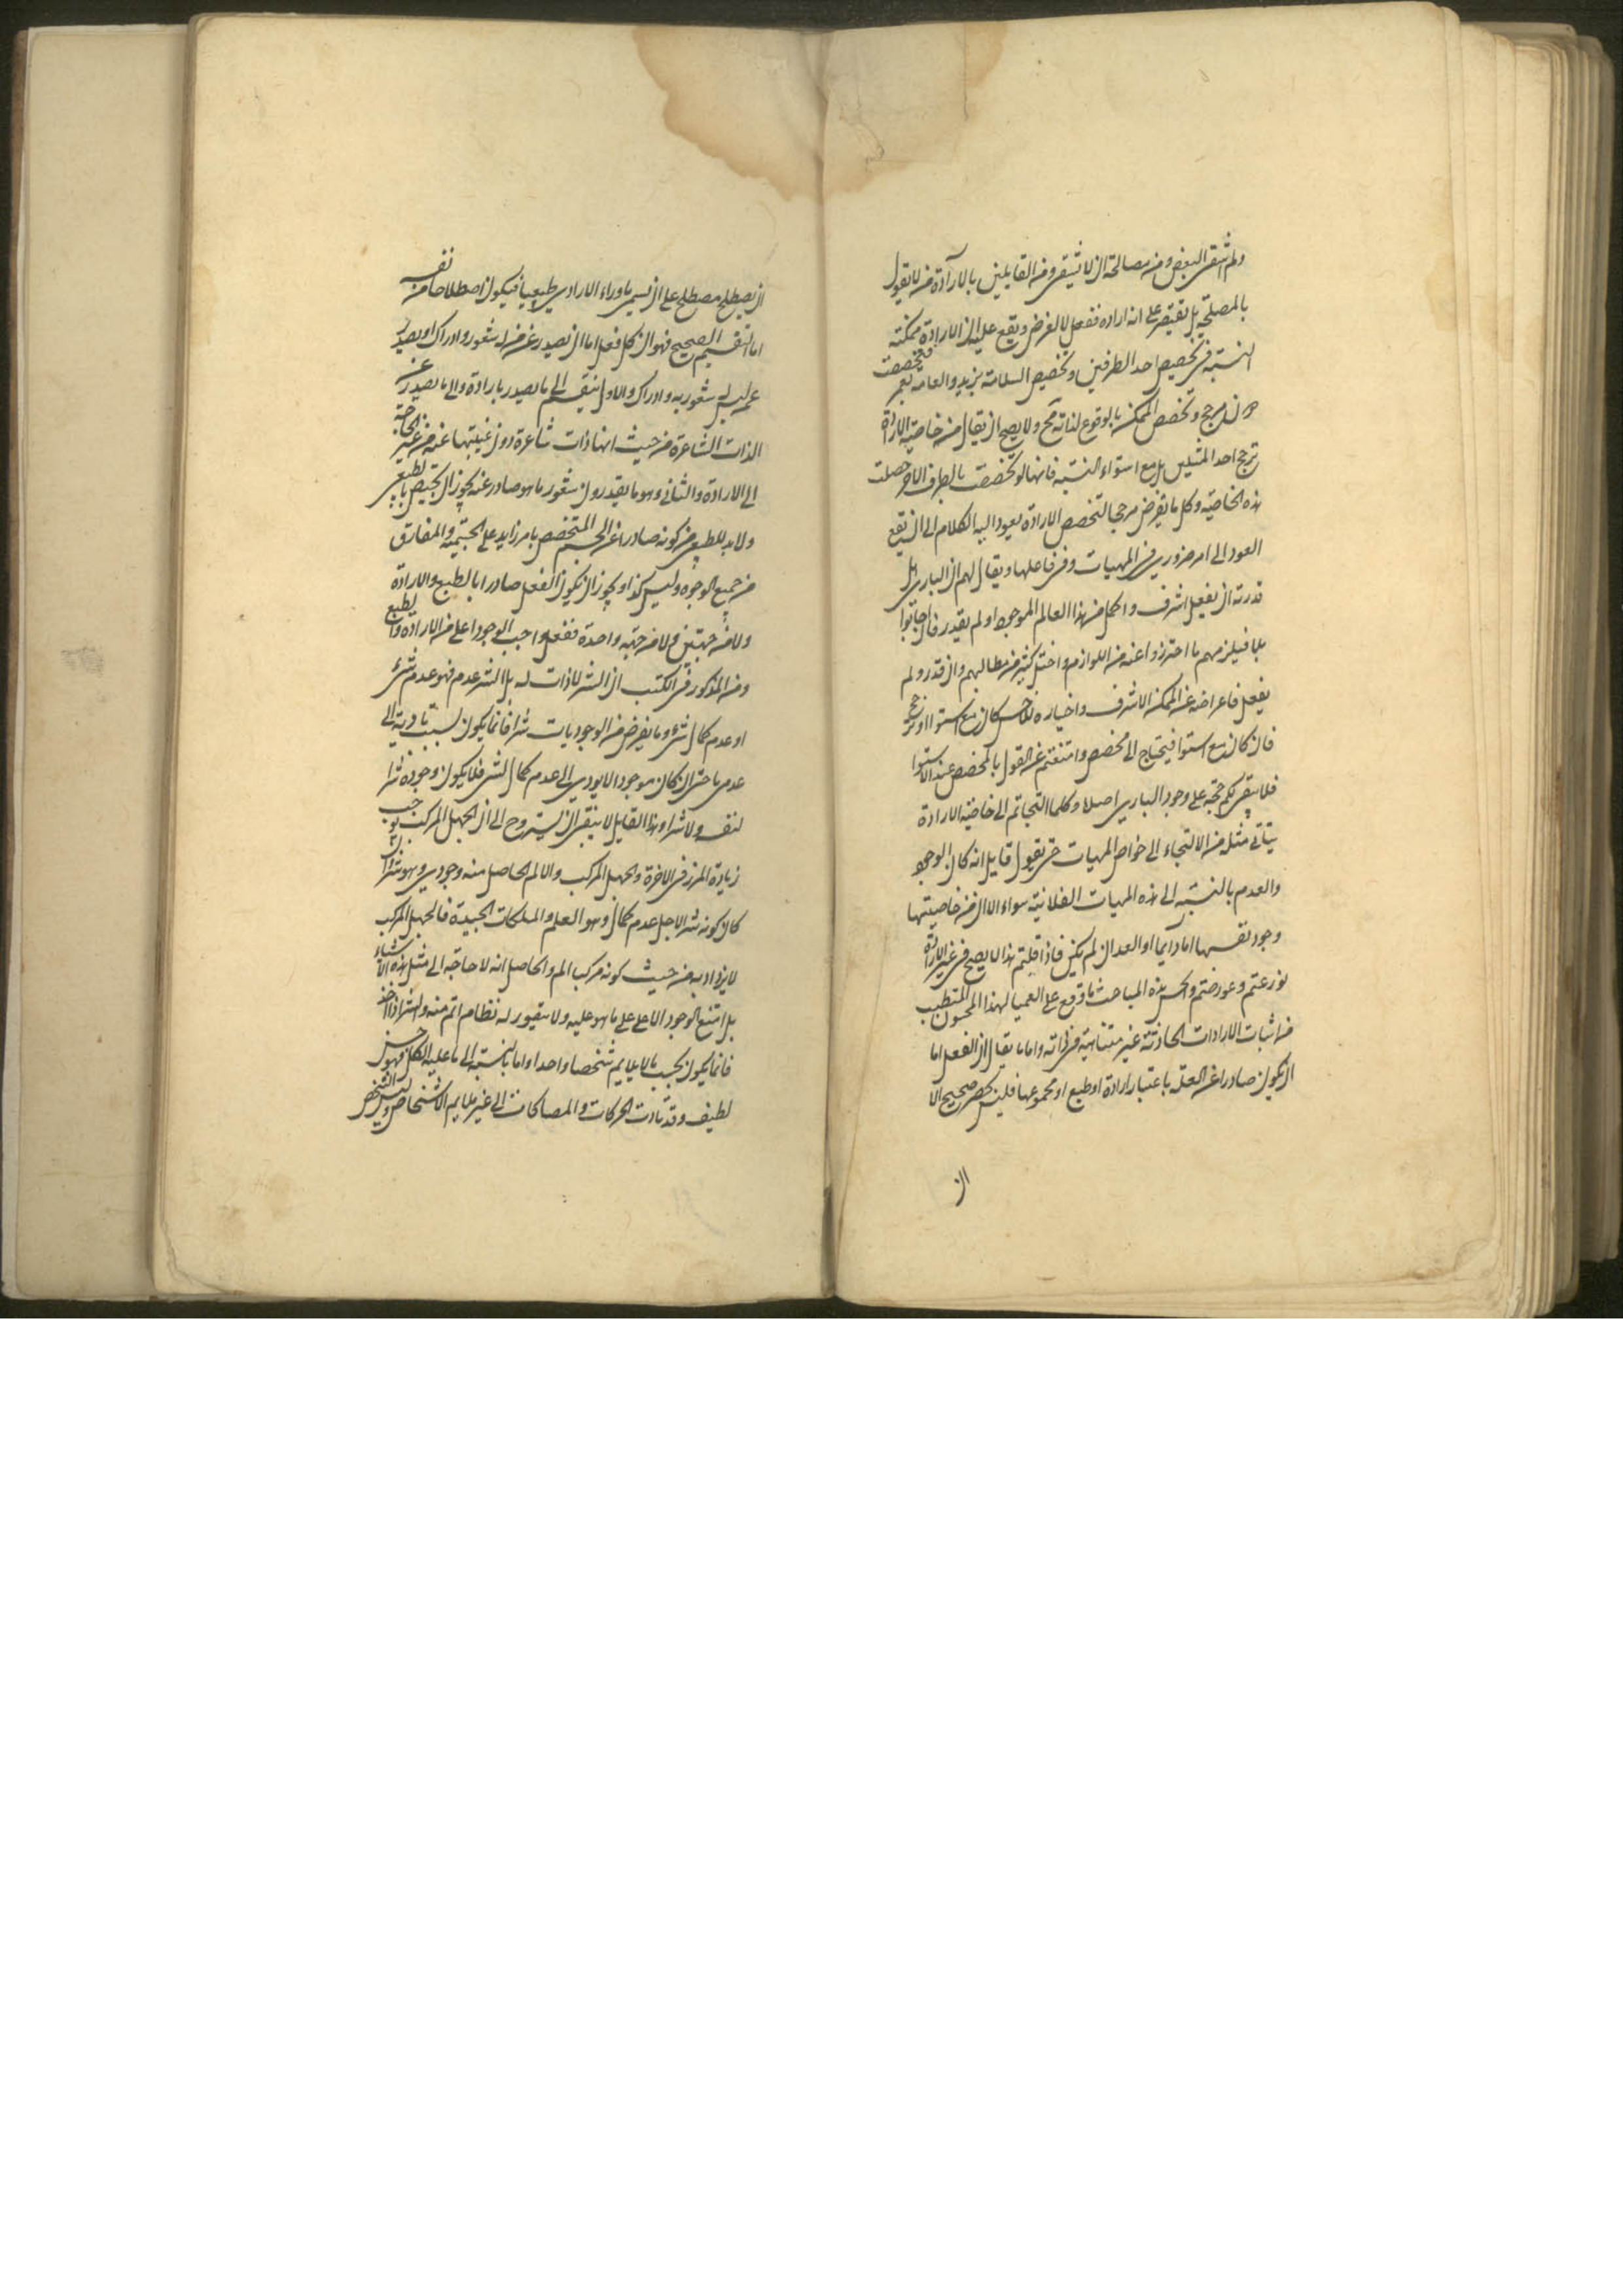 ولم اشقى البعض ومن مصالحة ان لا تشقى ومن القايلين بالارادة من لا يقول
بالمصلحة بل يقتصر على انه اراده ففعل لا لغرض ويقع عليه ان الارادة ممكنة
النسبة في تخصيص احد الطرفين وتخصيص السلامة بزيد والعامه بعمر فتخصصت
دون مرجح وتخصص الممكن بالوقوع لذاته مح ولا يصح ان يقال من خاصية الارادة
ترجح احد المثلين بل مع استواء النسبة فانها لو تخصصت بالطرف الاخر حصلت
هذه الخاصية وكل ما يفرض مرجحا لتخصص الارادة يعود اليه الكلام الى ان يقع
العود الى امر ضروري في المهيات وفي فاعلها ويقال لهم ان الباري هل
قدرته ان يفعل اشرف واكمل من هذا العالم الموجود او لم يقدر فان اجابوا
بلا فيلزمهم ما احترزوا عنه من اللوازم واختل كثير من مطالبهم وان قدر ولم
يفعل فاعراضه عن الممكن الاشرف واختياره للاخس كان مع استوا او ترجح
فان كان مع استوا فيحتاج الى مخصص وامتنعتم عن القول بالمخصص عند الاستوا
فلا يبقى لكم حجة على وجود الباري اصلا وكلما التجاتم الى خاصية الارادة
يتاتى مثله من الالتجاء الى خواص المهيات حتى يقول قايل انه كان الوجود
والعدم بالنسبة الى هذه المهيات الفلانية سواء الا ان من خاصيتها
وجود نفسها اما دايما او بعد ان لم تكن فاذا قلتم هذا لا يصح في غير الارادة
نوزعتم وعورضتم والحسن هذه المباحث ما وقع على العميا لهذا المحسون المتطبب
من اثبات الارادات الحادثة غير متناهية في ذاته واما ما يقال ان الفعل اما
ان يكون صادرا عن العلة باعتبار ارادة او طبع او مجموعهما فليس بحصر صحيح الا
ان
ان يصطلح مصطلح على ان يسمى ما وراء الارادي طبيعيا فيكون اصطلاحا من نفسه
اما التقسيم الصحيح فهو ان كل فعل اما ان يصدر عن من له شعور وادراك او يصدر
عن ما ليس له شعور به وادراك والاول ينقسم الى ما يصدر بارادة والى ما يصدر عن
الذات الشاعرة من حيث انها ذات شاعرة دون غيبتها عنه من غير الحاجة
الى الارادة والثاني وهو ما يقدر دون شعور ما هو صادر عنه يجوز ان تخصيص بالطبيعي
ولا بد للطبيعي من كونه صادرا عن الجسم المتخصص بامر زايد على الجسمية والمفارق
من جميع الوجوه وليس كذا ويجوز ان يكون الفعل صادرا بالطبع والارادة
ولا من جهتين ولا من جهة واحدة ففعل واجب الوجود اعلى من الارادة والطبع
ومن المذكور في الكتب ان الشر لا ذات له بل الشر عدم فهو عدم شيء
او عدم كمال شيء وما يفرض من الوجوديات شرا فانما يكون لسبب تاديته الى
عدم ما حتى ان كان موجودا لا يودي الى عدم كمال لشيء فلا يكون وجوده شرا
لنفسه ولا شرا وهذا القايل لا ينبغي ان يستروح الى ان الجهل المركب يوجب
زيادة المرز في الاخرة والجهل المركب والالم الحاصل منه وجودي وهو شر وان
كان كونه شرا لاجل عدم كمال وهو العلم والملكات الجيدة فالجهل المركب
لا يزداد به من حيث كونه مركب الم والحاصل انه لا حاجة الى مثل هذه الاشياء
بل امتنع الوجود الاعلى على ما هو عليه ولا يتصور له نظام اتم منه والشر اذا اخذ
فانما يكون بحسب ما لا يلايم شخصا واحدا واما بالنسبة الى ما عليه الكل فهو خير
لطيف وقد تادت الحركات والمصاكات الى غير ملايم الاشخاص وليس الشخص